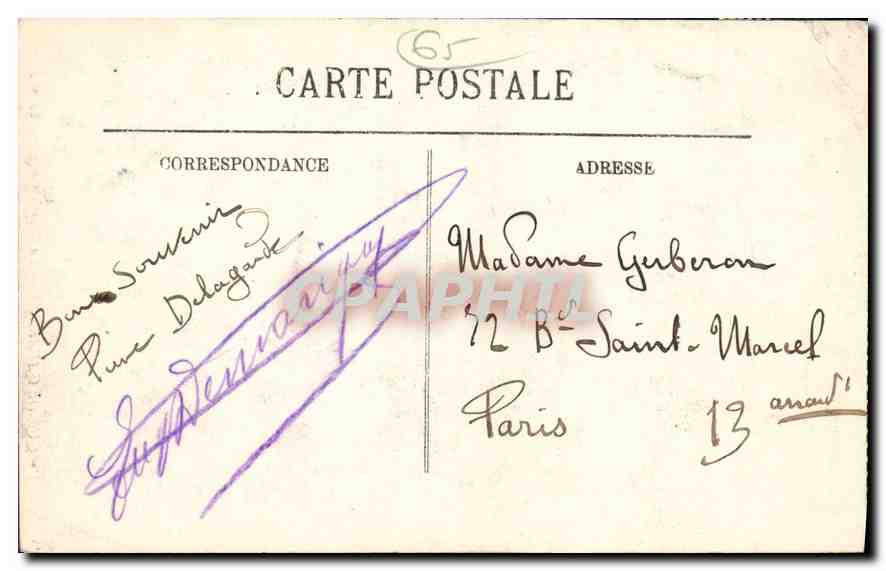 65
CARTE POSTALE
CORRESPONDANCE
Bon Souvenir
Pierre Delagarde
ADRESSE
Madame Gerberon
72 Bd Saint-Marcel
Paris 13 arrondt
CPAPHIL